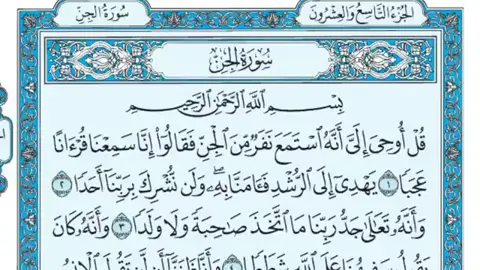 الجزء التاسع والعشرون
سورة الجن
سُورَةُ الجِنِّ
بِسْمِ اللَّهِ الرَّحْمَٰنِ الرَّحِيمِ
قُلْ أُوحِيَ إِلَىَّ أَنَّهُ ٱسْتَمَعَ نَفَرٌ مِّنَ ٱلْجِنِّ فَقَالُوٓا۟ إِنَّا سَمِعْنَا قُرْءَانًا
عَجَبًا ١ يَهْدِىٓ إِلَى ٱلرُّشْدِ فَـَٔامَنَّا بِهِۦ ۖ وَلَن نُّشْرِكَ بِرَبِّنَآ أَحَدًا ٢
وَأَنَّهُۥ تَعَٰلَىٰ جَدُّ رَبِّنَا مَا ٱتَّخَذَ صَٰحِبَةً وَلَا وَلَدًا ٣ وَأَنَّهُۥ كَانَ